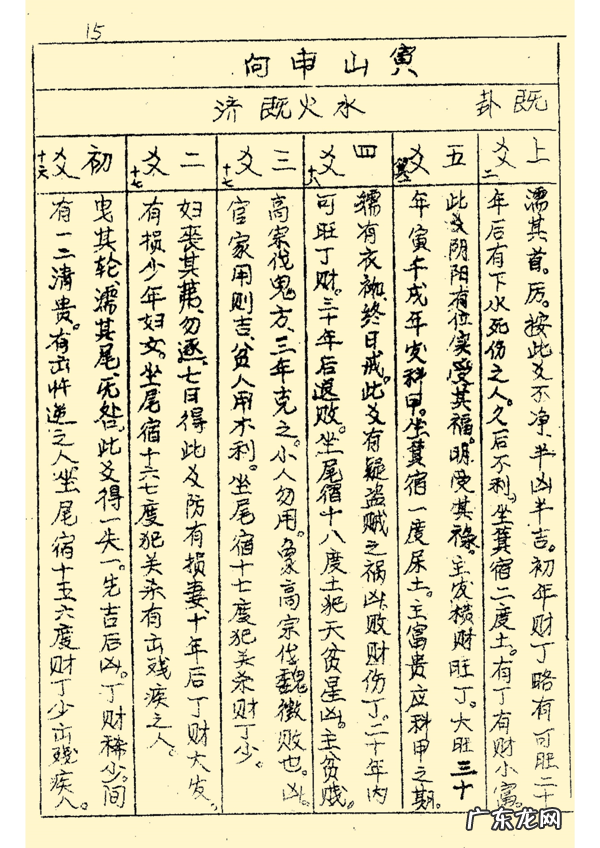 15
寅山申向
既卦 水火既济
上爻 二
濡其首。厉。按此爻不净、半凶半吉。初年财丁略有可旺二十
年后有下水死伤之人。久后不利。坐箕宿二度土。有丁有财小富。
五爻
此爻阴阳有位实受其福。明受其禄。主发横财旺丁。大旺三十
年寅午戌年发科甲。坐箕宿一度尿土。主富贵应科甲之期。
四爻 十八
繻有衣袽终日戒。此爻有疑盗贼之祸凶败财伤丁。二十年内
可旺丁财。三十年后退败。坐尾宿十八度土犯天贫星凶。主贫贱。
三爻 十七
高宗伐鬼方、三年克之。小人勿用。象高宗伐魏微败也。凶。
官家用则吉、贫人用不利。坐尾宿十七度犯关杀财丁少。
二爻 十七
妇丧其茀、勿逐。七日得此爻防有损妻、十年后丁财大发。
有损少年妇女。坐尾宿十六七度犯关杀有出残疾之人。
初爻 十六
曳其轮、濡其尾、无咎。此爻得一失一。先吉后凶。丁财稀少。间
有一二清贵。有出忤逆之人坐尾宿十五六度财丁少出残疾人。
广东龙网